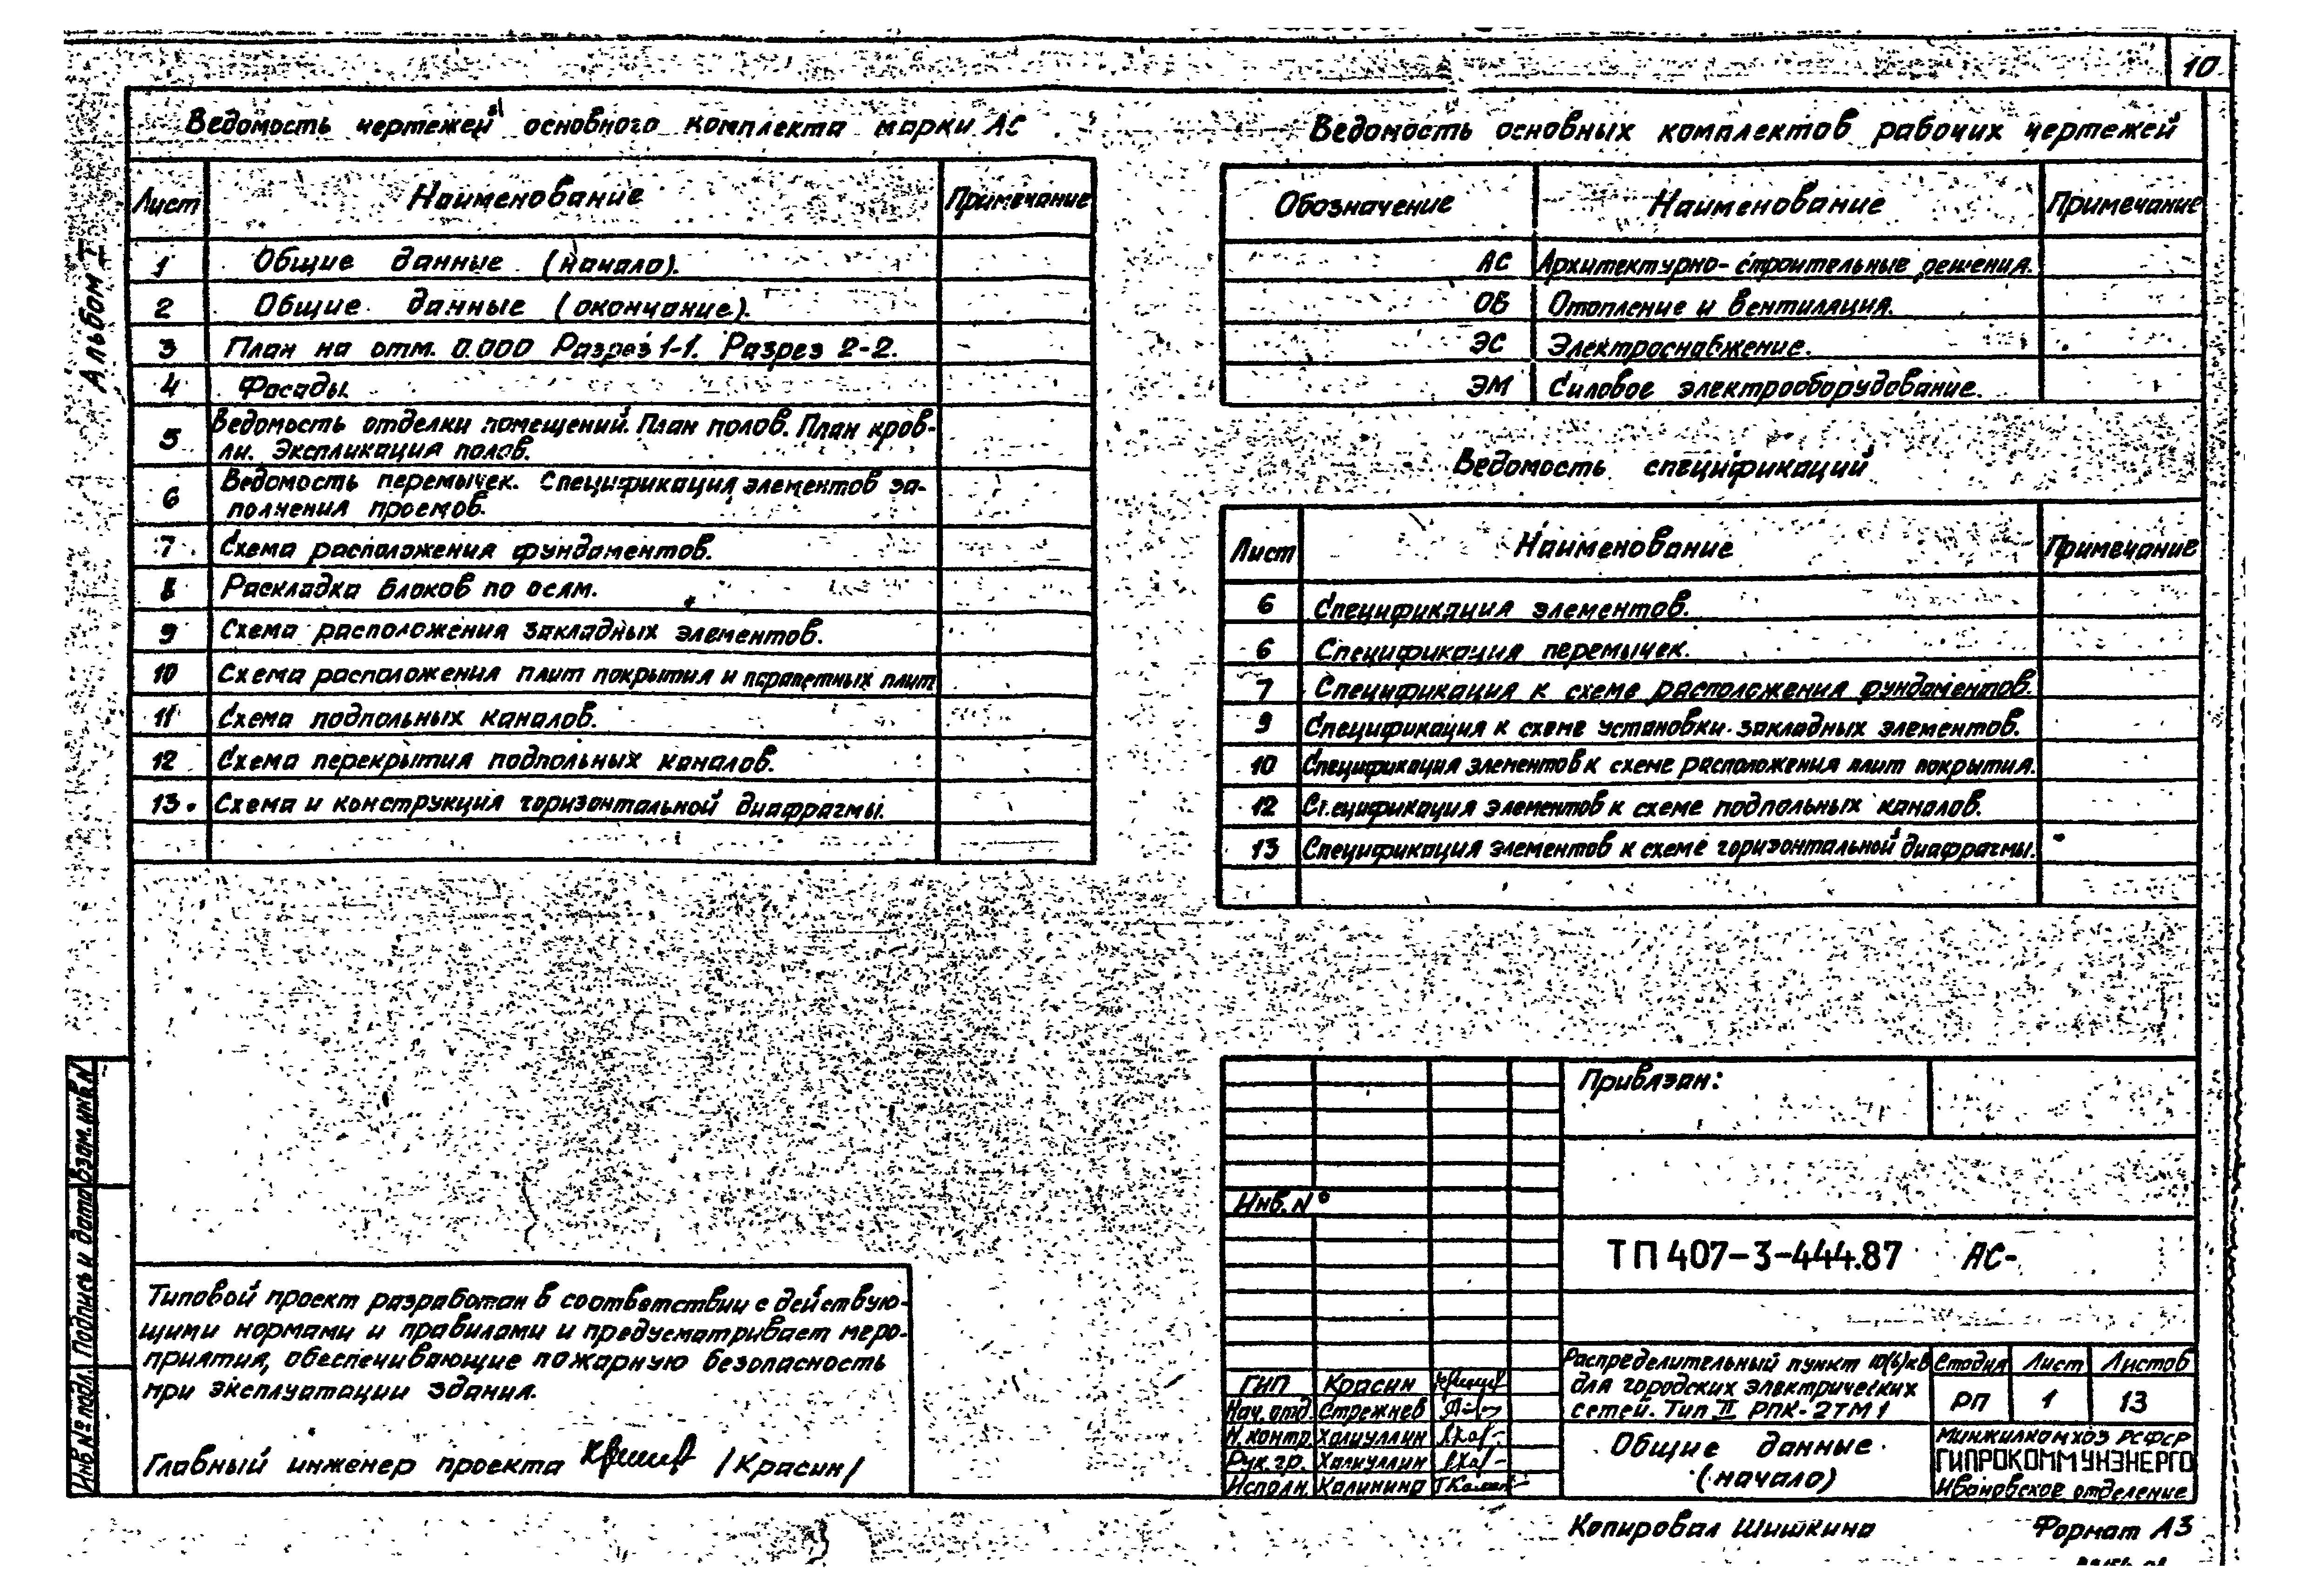 10
Альбом I
Ведомость чертежей основного комплекта марки АС
Лист Наименование Примечание
1 Общие данные (начало).
2 Общие данные (окончание).
3 План на отм. 0.000 Разрез 1-1. Разрез 2-2.
4 Фасады.
5 Ведомость отделки помещений. План полов. План кров-
ли. Экспликация полов.
6 Ведомость перемычек. Спецификация элементов за-
полнения проемов.
7 Схема расположения фундаментов.
8 Раскладка блоков по осям.
9 Схема расположения закладных элементов.
10 Схема расположения плит покрытия и парапетных плит
11 Схема подпольных каналов.
12 Схема перекрытия подпольных каналов.
13 Схема и конструкция горизонтальной диафрагмы.
Ведомость основных комплектов рабочих чертежей
Обозначение Наименование Примечание
АС Архитектурно-строительные решения.
ОВ Отопление и вентиляция.
ЭС Электроснабжение.
ЭМ Силовое электрооборудование.
Ведомость спецификаций
Лист Наименование Примечание
6 Спецификация элементов.
6 Спецификация перемычек.
7 Спецификация к схеме расположения фундаментов.
9 Спецификация к схеме установки закладных элементов.
10 Спецификация элементов к схеме расположения плит покрытия.
12 Спецификация элементов к схеме подпольных каналов.
13 Спецификация элементов к схеме горизонтальной диафрагмы.
Типовой проект разработан в соответствии с действую-
щими нормами и правилами и предусматривает меро-
приятия, обеспечивающие пожарную безопасность
при эксплуатации здания.
Главный инженер проекта /Красин/
Инв.№ подл. Подпись и дата Взам. инв. N
Привязан:
Инв. N°
ТП 407-3-444.87 АС-
ГИП Красин
Нач. отд. Стрежнев
Н. контр. Халиуллин
Рук. гр. Халиуллин
Исполн. Калинина
Распределительный пункт 10(6)кВ
для городских электрических
сетей. Тип II РПК-2ТМ1
Стадия Лист Листов
РП 1 13
Общие данные
(начало)
Минжилкомхоз РСФСР
ГИПРОКОММУНЭНЕРГО
Ивановское отделение
Копировал Шишкина Формат А3